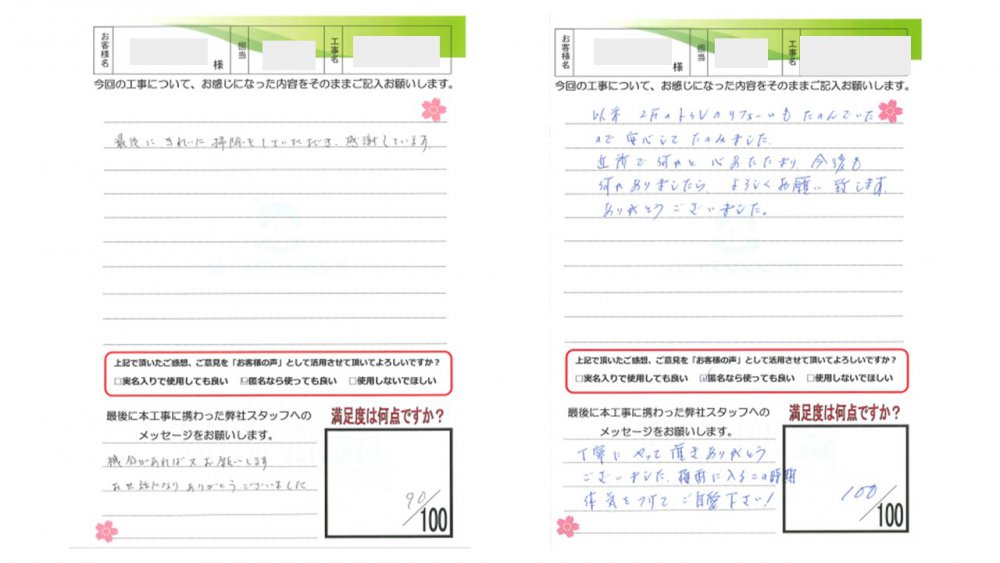 お客様名
様
担当
工事名
今回の工事について、お感じになった内容をそのままご記入お願いします。
最後にきれいに掃除をしていただき、感謝しています
上記で頂いたご感想、ご意見を「お客様の声」として活用させて頂いてよろしいですか？
□実名入りで使用しても良い ☑匿名なら使っても良い □使用しないでほしい
最後に本工事に携わった弊社スタッフへの
メッセージをお願いします。
機会があれば又お願いします
お世話になりありがとうございました
満足度は何点ですか？
90/100
お客様名
様
担当
工事名
今回の工事について、お感じになった内容をそのままご記入お願いします。
以来 2Fのトイレのリフォームもたのんでいた
ので安心してたのみました。
近所で何かと心あたたまり 今後も
何かありましたら よろしくお願い致します。
ありがとうございました。
上記で頂いたご感想、ご意見を「お客様の声」として活用させて頂いてよろしいですか？
□実名入りで使用しても良い ☑匿名なら使っても良い □使用しないでほしい
最後に本工事に携わった弊社スタッフへの
メッセージをお願いします。
丁寧にやって頂きありがとう
ございました。梅雨に入るこの時期
体気をつけてご自愛下さい!
満足度は何点ですか？
100/100